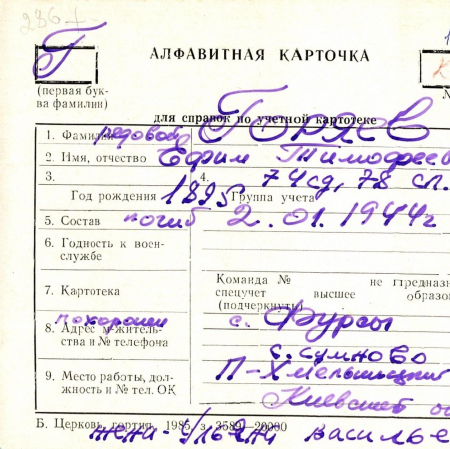 286
Г
АЛФАВИТНАЯ КАРТОЧКА
(первая бук-
ва фамилии)
для справок по учетной картотеке
1. Фамилия рядовой Горяев
2. Имя, отчество Ефим Тимофеев
3. 4. 74 сд, 78 сп.
Год рождения 1895 Группа учета
5. Состав погиб 2.01.1944г
6. Годность к воен-
службе
7. Картотека
Команда № не предназн
спецучет высшее образо
(подчеркнуть)
похоронен с. Фурсы
8. Адрес м-житель-
ства и № телефона
9. Место работы, дол-
жность и № тел. ОК
П-Хмельницкий
Киевской об
Б. Церковь, гортип. 1985 з. 3589—20000
жена - Ульяна Василье